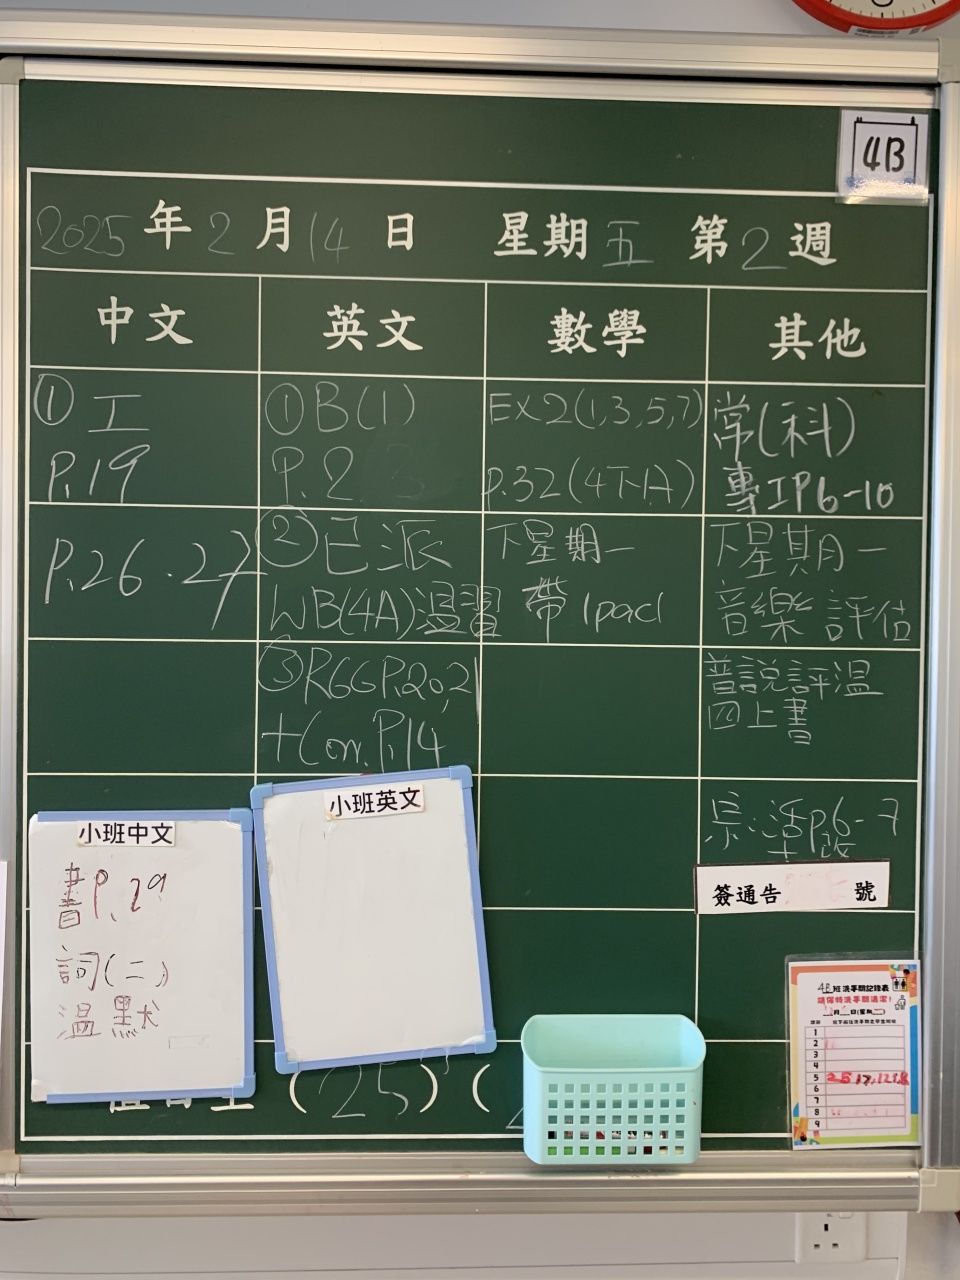 4B
2025年2月14日 星期五 第2週
中文 英文 數學 其他
① 工
P.19
P.26.27
①B(1)
P.2
②已派
WB(4A)溫習
③RGGP.20,21
+Corr.P.14
EX2(1,3,5,7)
P.32(4下A)
下星期一
帶 Ipad
常(科)
專工P6-10
下星期一
音樂 評估
普說評溫
四上書
宗:活P6-7
簽通告 號
小班中文
書P.29
詞(二)
溫默
小班英文
(25) (
4B班洗手間記錄表
請保持洗手間清潔!
1
2
3
4
5
6
7
8
9